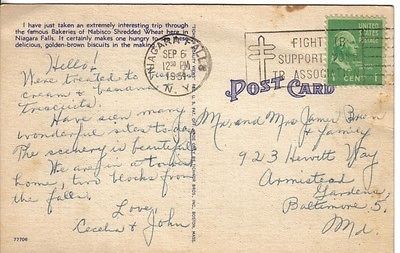 I have just taken an extremely interesting trip through the
famous Bakeries of Nabisco Shredded Wheat here in
Niagara Falls. It certainly makes one hungry to
delicious, golden-brown biscuits in the making
Hello!
We're treated to
cream & banana
Triscuits.
Have seen many
wonderful sites today
The scenery is beautiful
We are in a tourist
home, two blocks from
the falls.
Love,
Cecelia & John
77706
NIAGARA FALLS
SEP 6
12 PM
1951
N. Y.
FIGHT TB
SUPPORT
TB ASSOC
UNITED STATES
1 CENT 1
POST CARD
Mr. and Mrs James Brown
& Family
923 Hewitt Way
Armistead
Gardens,
Baltimore 5,
Md.